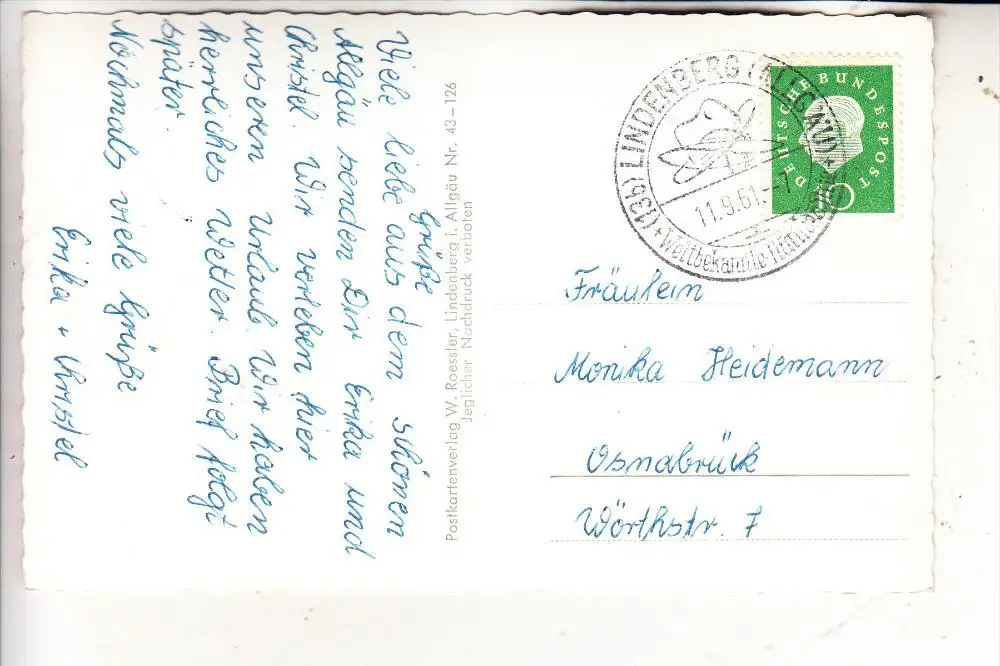 Grüße
Viele liebe aus dem schönen
Allgäu senden Dir Erika und
Christel. Wir verleben hier
unseren Urlaub. Wir haben
herrliches Wetter. Brief folgt
später.
Nochmals viele Grüße
Erika + Christel
Postkartenverlag W. Roessler, Lindenberg i. Allgäu Nr. 43–126
Jeglicher Nachdruck verboten
(13b) LINDENBERG (ALLGÄU)
11.9.61.–7
Weltbekannte
DEUTSCHE BUNDESPOST
10
Fräulein
Monika Heidemann
Osnabrück
Wörthstr. 7